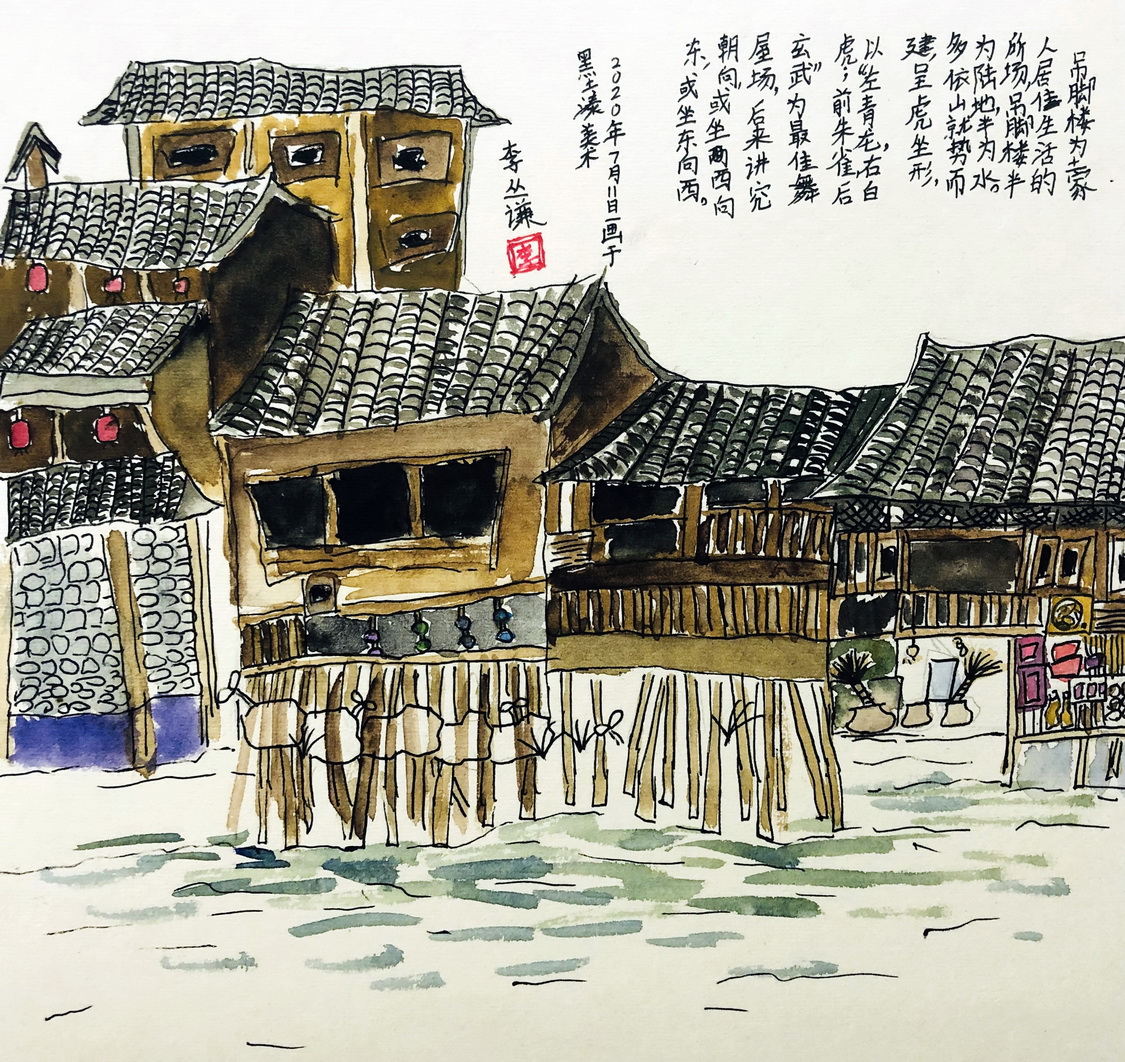 吊脚楼为蒙
人居住生活的
所场,吊脚楼半
为陆地,半为水。
多依山就势而
建,呈虎坐形,
以“左青龙,右白
虎;前朱雀,后
玄武”为最佳舞
屋场,后来讲究
朝向,或坐西向
东,或坐东向西。
2020年7月11日画于
黑土凌美术
李丛谦